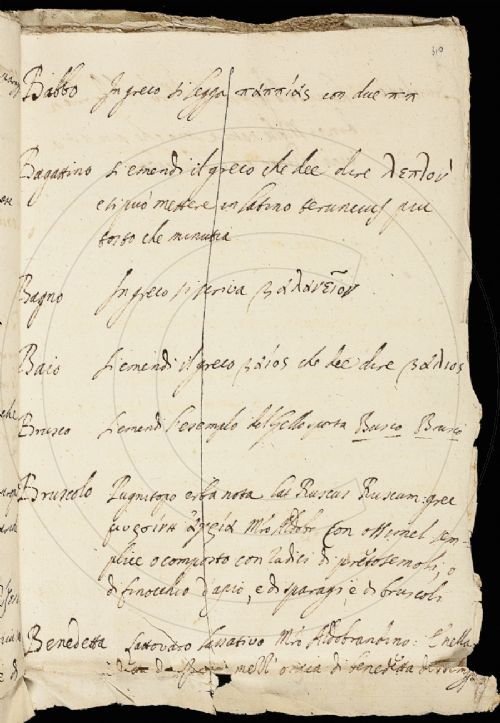 310
Babbo In greco si legga παππίας con due ππ
Bagattino si emendi il greco che dee dire λεπτοὺ
e si può mettere in latino teruncius piu
tosto che minutia
Bagno In greco si scriva βαλανεῖον
Baio Si emendi il greco βάϊος che dee dire βάλιος
Brusco Si emendi l'esempio del Busco Brusco
Bruscolo Pugnitopo erba nota lat Ruscus Ruscum: grec
μυρσίνη ἀγρία Mro Aldobr Con ossimel sem-
plice o composto con radici di pretosemoli, o
di finocchio d'apio, e di sparagi, e di bruscoli
Benedetta lattovaro lassativo Mro Aldobrandino: E nella
mezz' oncia di benedetta